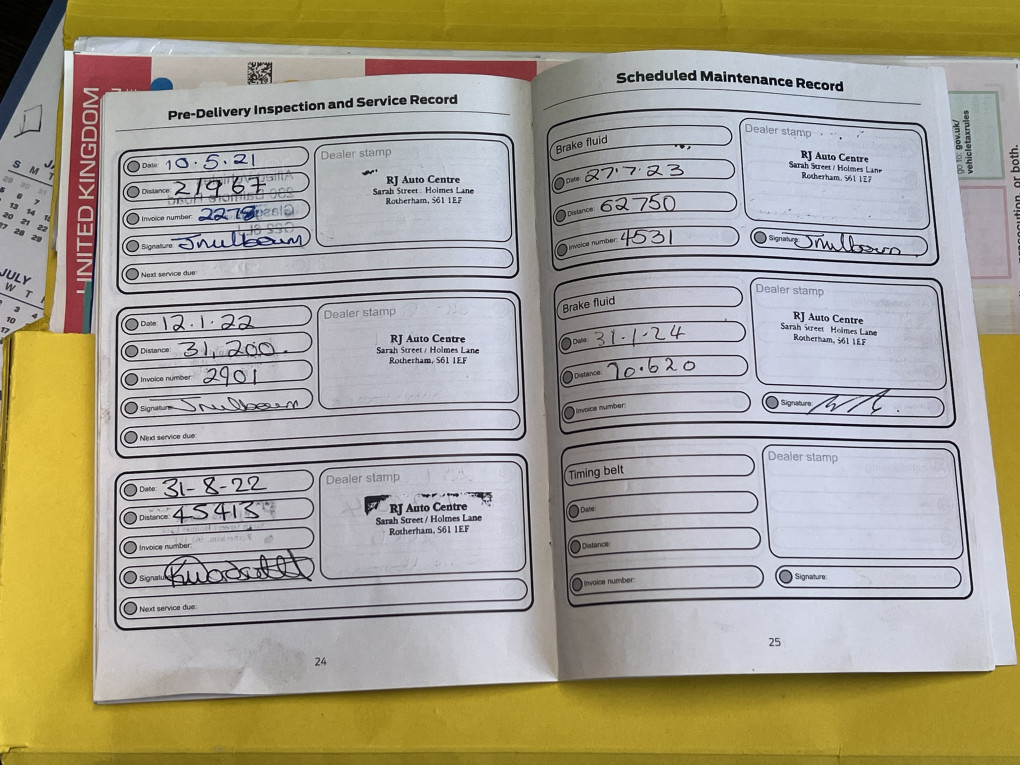 UNITED KINGDOM
Pre-Delivery Inspection and Service Record
Date: 10.5.21
Distance: 21967
Invoice number: 2278
Signature:
Next service due:
Dealer stamp
RJ Auto Centre
Sarah Street / Holmes Lane
Rotherham, S61 1EF
Date: 12.1.22
Distance: 31,200.
Invoice number: 2901
Signature:
Next service due:
Dealer stamp
RJ Auto Centre
Sarah Street / Holmes Lane
Rotherham, S61 1EF
Date: 31-8-22
Distance: 45413
Invoice number:
Signature:
Next service due:
Dealer stamp
RJ Auto Centre
Sarah Street / Holmes Lane
Rotherham, S61 1EF
24
Scheduled Maintenance Record
Brake fluid
Date: 27.7.23
Distance: 62750
Invoice number: 4531
Dealer stamp
RJ Auto Centre
Sarah Street Holmes Lane
Rotherham, S61 1EF
Signature:
Brake fluid
Date: 31.1.24
Distance: 70.620
Invoice number:
Dealer stamp
RJ Auto Centre
Sarah Street Holmes Lane
Rotherham, S61 1EF
Signature:
Timing belt
Date:
Distance:
Invoice number:
Dealer stamp
Signature:
25
go to: gov.uk/
vehicletaxrules
prosecution or both.
JULY